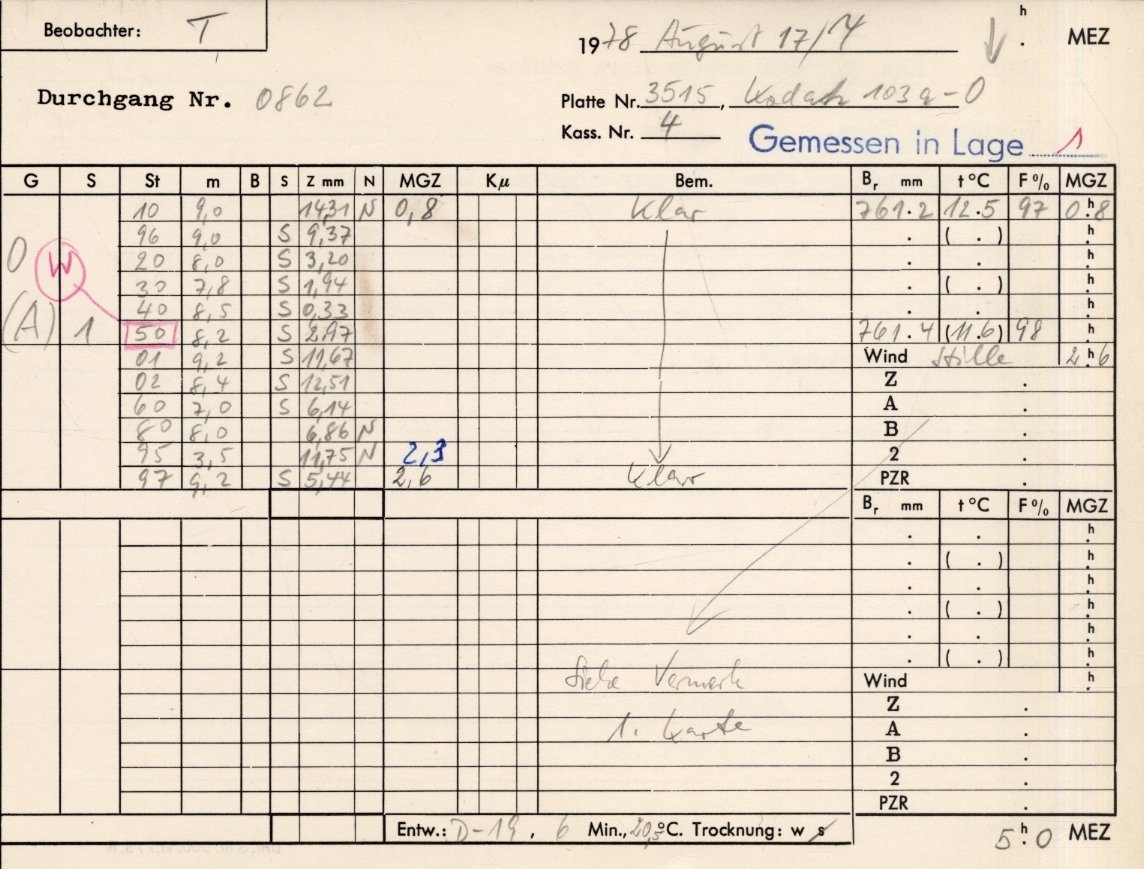 Beobachter: T
1978 August 17/ h . MEZ
Durchgang Nr. 0862
Platte Nr. 3515, Kodak 103a-O
Kass. Nr. 4
Gemessen in Lage 1
G S St m B S Z mm N MGZ Kµ Bem. Br mm t °C F% MGZ
10 9,0 14,31 N 0,8 Klar 761.2 12.5 97 0h.8
96 9,0 S 9,37 . ( . ) h.
0 W 20 8,0 S 3,20 . . h.
30 7,8 S 1,94 . ( . ) h.
40 8,5 S 0,33 . . h.
(A) 1 50 8,2 S 2,97 761.4 (11.6) 98 h.
01 9,2 S 11,67 Wind Stille 2h.6
02 8,4 S 12,51 Z .
60 7,0 S 6,14 A .
80 8,0 6,86 N B .
95 3,5 11,75 N 2,3 2 .
97 9,2 S 5,44 2,6 Klar PZR .
Br mm t °C F% MGZ
. . h.
. ( . ) h.
. . h.
. ( . ) h.
. . h.
. ( . ) h.
Siehe Vermerk Wind h.
Z .
1. Karte A .
B .
2 .
PZR .
Entw.: D-19. 6 Min., 20,5 °C. Trocknung: w s
5h.0 MEZ